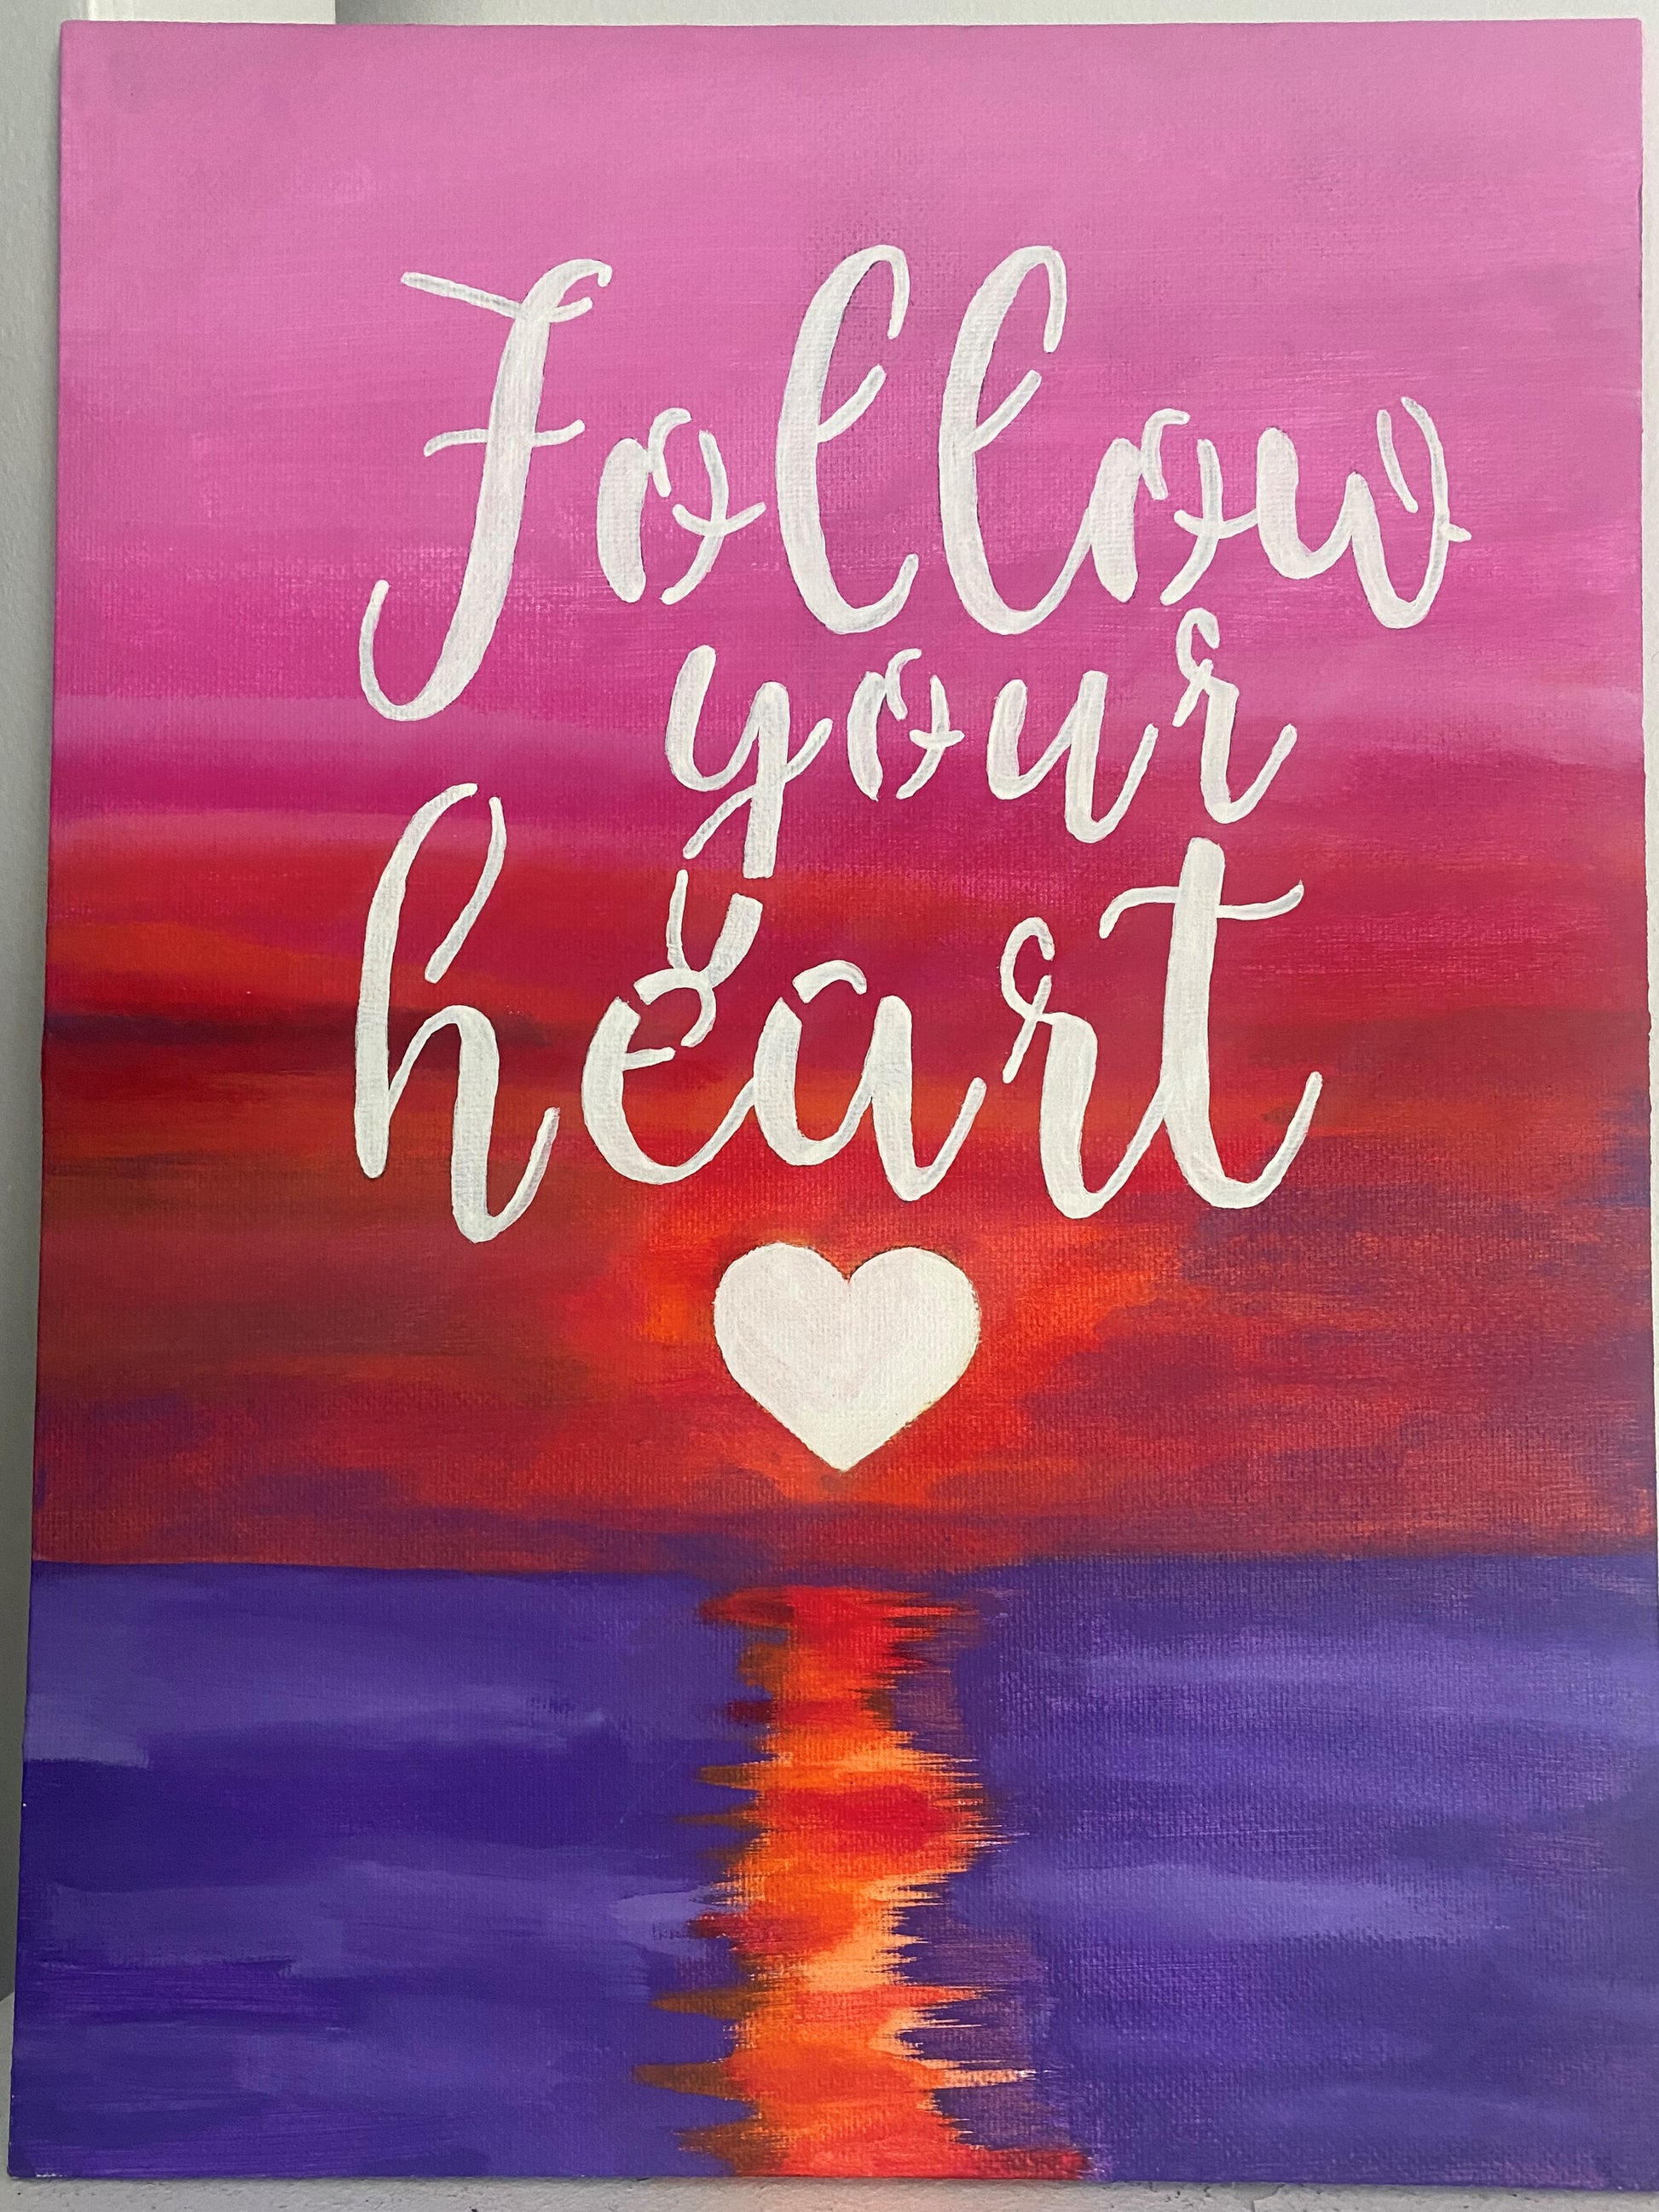 Follow
your
heart